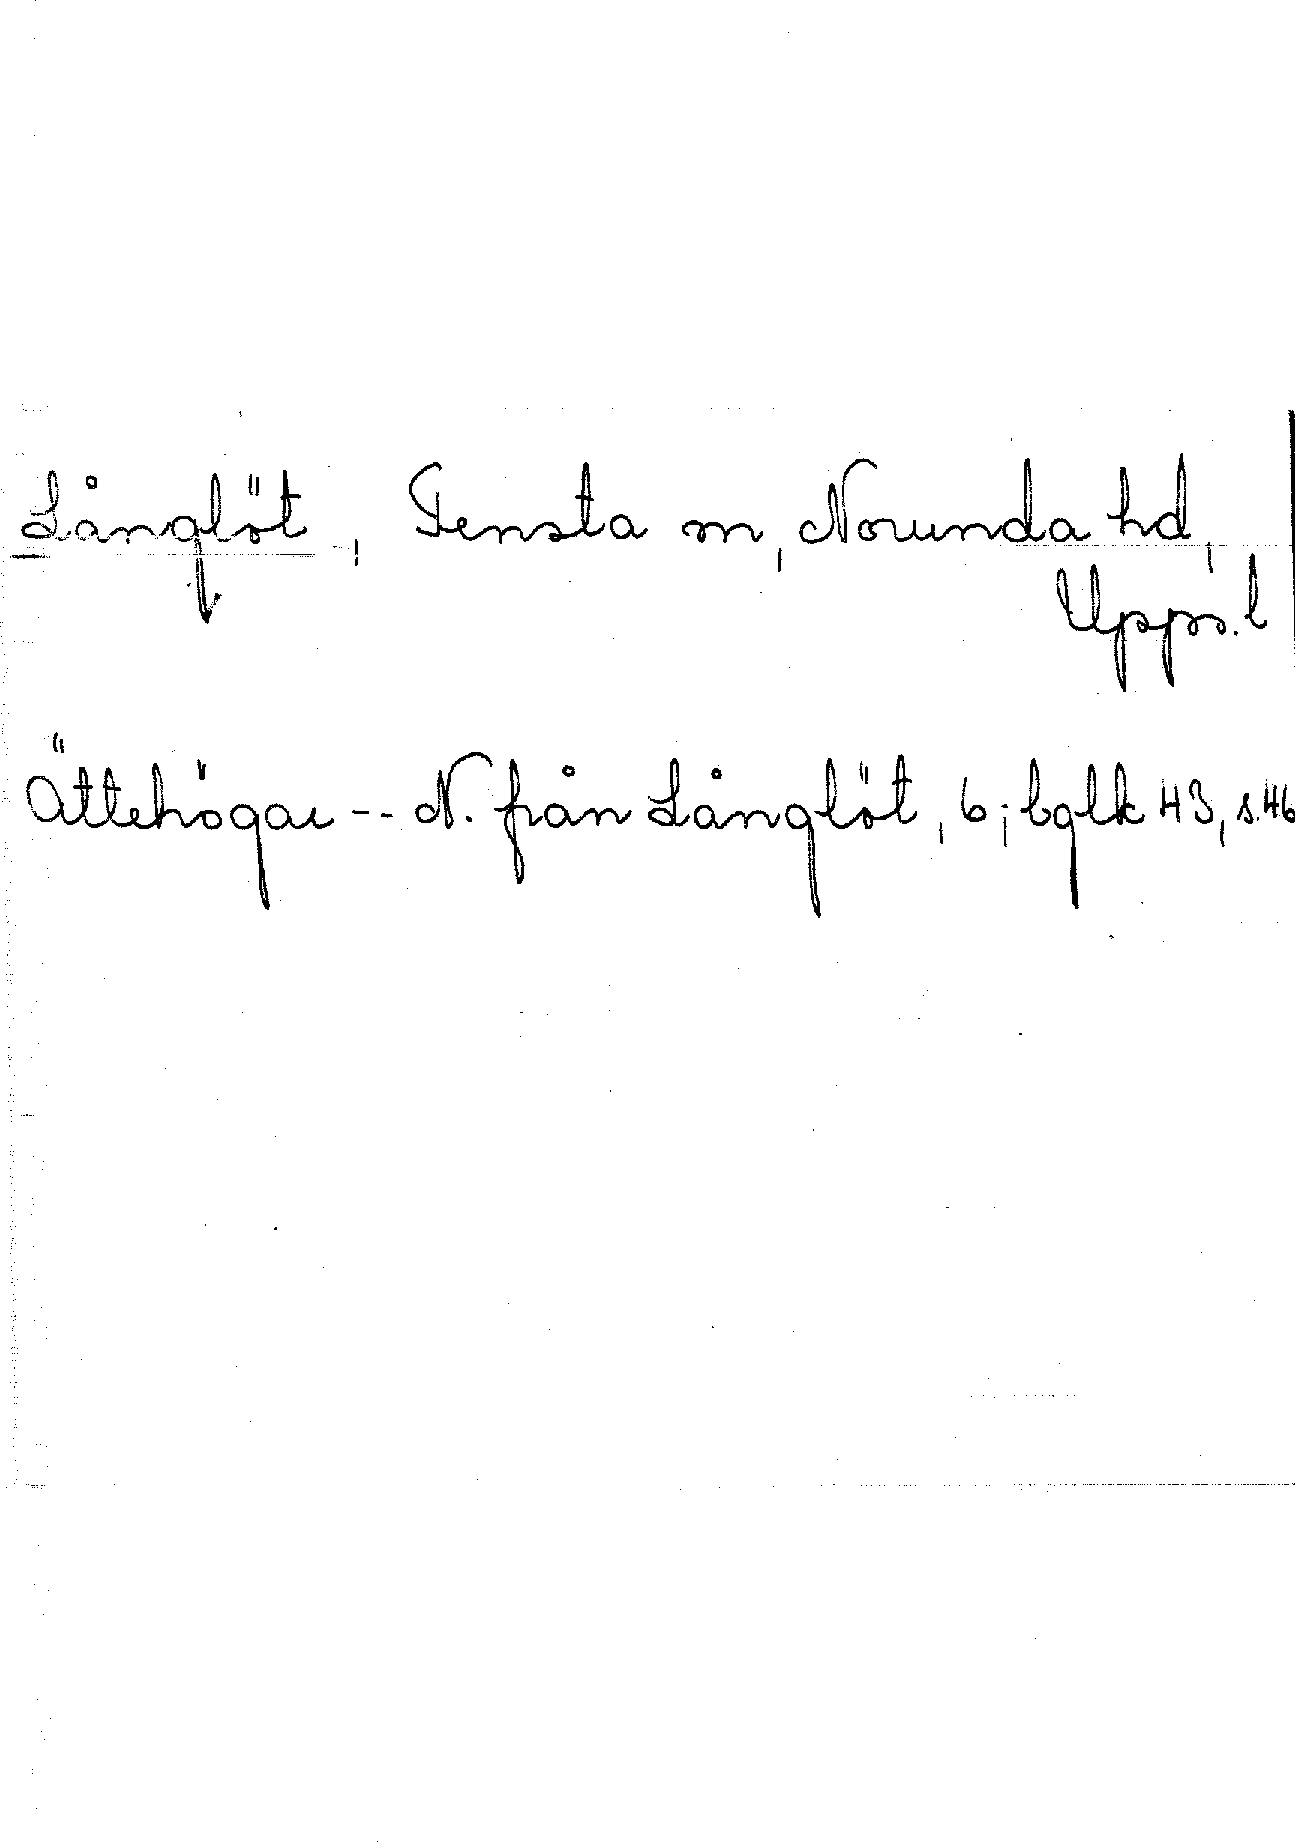 Långlöt, Tensta sn, Norunda hd,
Upps. l
Ättehögar -- N. från Långlöt, 6; bglk 43, s. 46